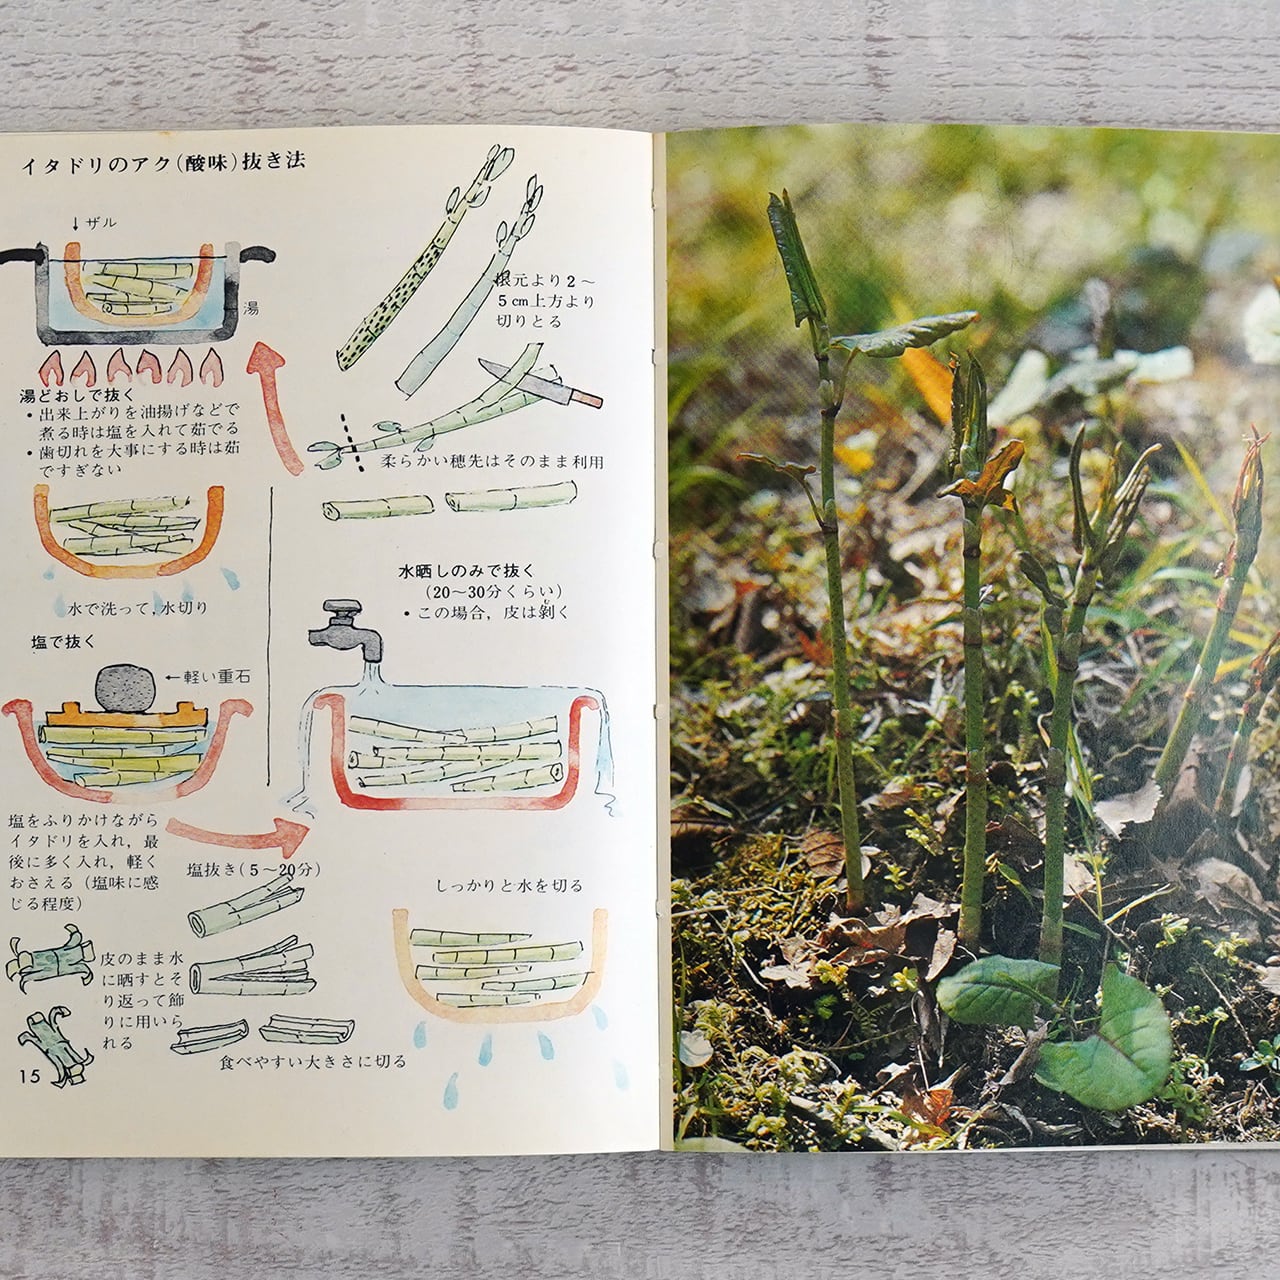 イタドリのアク(酸味)抜き法
↓ザル
湯
湯どおしで抜く
・出来上がりを油揚げなどで
煮る時は塩を入れて茹でる
・歯切れを大事にする時は茹
ですぎない
水で洗って,水切り
塩で抜く
←軽い重石
塩をふりかけながら
イタドリを入れ，最
後に多く入れ，軽く
おさえる（塩味に感
じる程度）
根元より2～
5cm上方より
切りとる
柔らかい穂先はそのまま利用
水晒しのみで抜く
（20～30分くらい）
・この場合，皮は剝く
塩抜き(5～20分)
しっかりと水を切る
皮のまま水
に晒すとそ
り返って飾
りに用いら
れる
食べやすい大きさに切る
15